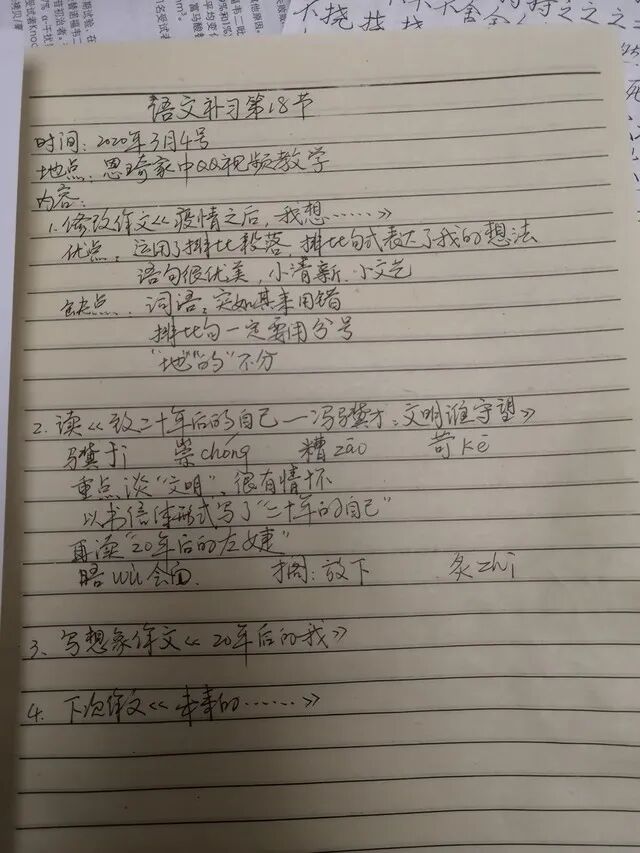 语文补习第18节
时间：2020年3月4号
地点：思琦家中QQ视频教学
内容：
1.修改作文《疫情之后，我想……》
优点：运用了排比段落，排比句式表达了我的想法
语句很优美，小清新、小文艺
缺点：词语：突如其来用错
排比句一定要用分号
"地""的"不分
2.读《致二十年后的自己—冯骥才：文明谁守望》
骥jì 崇chóng 糟zāo 苛kē
重点谈"文明"，很有情怀
以书信体形式写了"二十年的自己"
再读"20年后的左婕"
晤wù会面 搁：放下 炙zhì
3、写想象作文《20年后的我》
4、下次作文《未来的……》